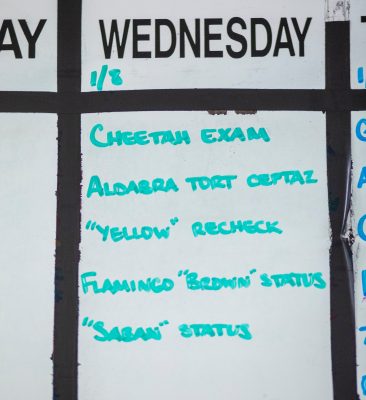 AY
WEDNESDAY
1/8
CHEETAH EXAM
ALDABRA TORT CEFTAZ
"YELLOW" RECHECK
FLAMINGO "BROWN" STATUS
"SABAN" STATUS